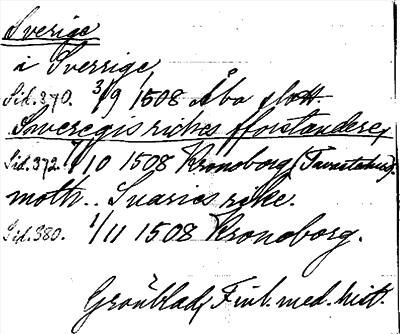 Sverige
i Sverrige
Sid. 370. 3/9 1508 Åbo slott.
Sweregis rickes fforstandere,
Sid. 372. 7/10 1508 Kronoborg (Tavastehus).
moth.. Suaries rike.
Sid. 380. 1/11 1508 Kronoborg.
Grönblad, Finl. med. hist.